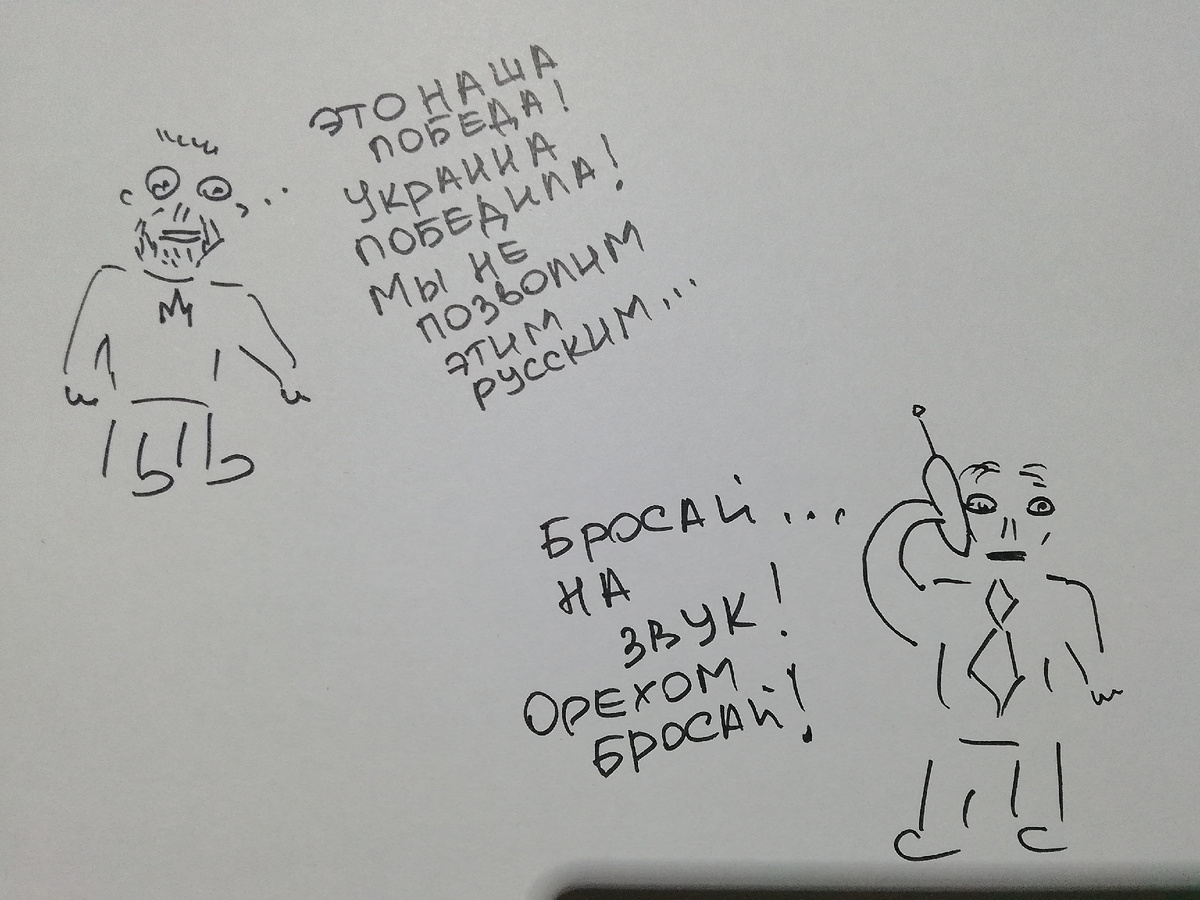 ЭТО НАША
ПОБЕДА!
УКРАИНА
ПОБЕДИЛА!
МЫ НЕ
ПОЗВОЛИМ
ЭТИМ
РУССКИМ...
БРОСАЙ...
НА
ЗВУК!
ОРЕХОМ
БРОСАЙ!